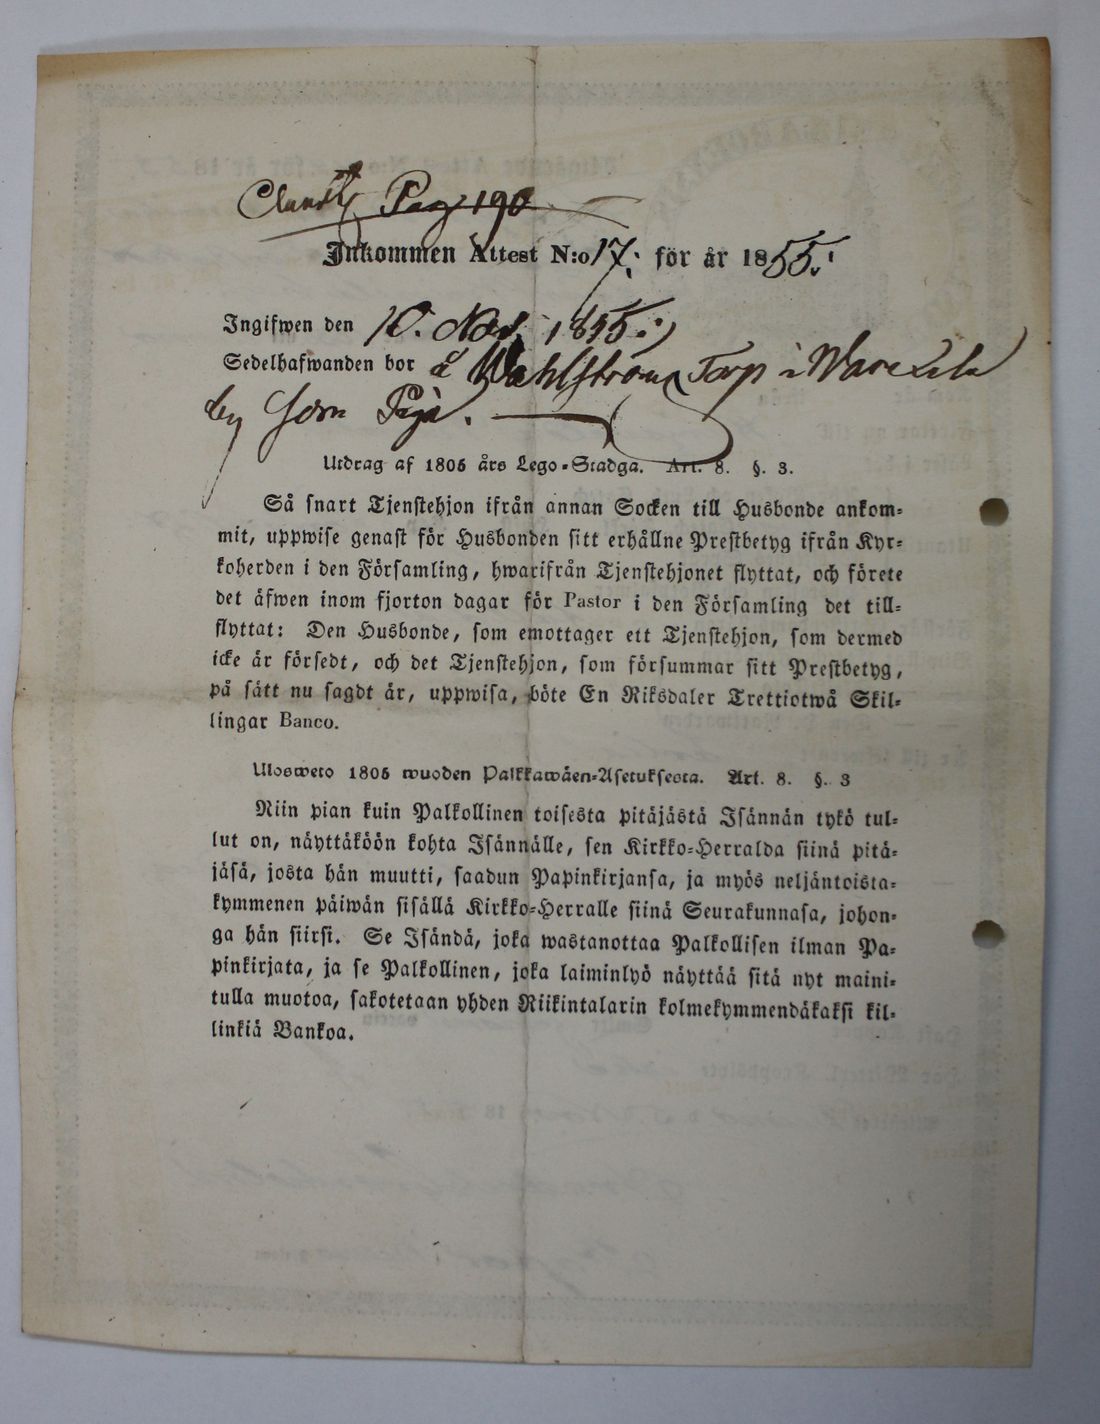 Pag 190
Inkommen Attest N:o 17. för år 1855.
Ingifwen den 10. Nov. 1855.
Sedelhafwanden bor å Wahlström Torp i
by som Piga.
Utdrag af 1805 års Lego-Stadga. Art. 8. §. 3.
Så snart Tjenstehjon ifrån annan Socken till Husbonde ankom-
mit, uppwise genast för Husbonden sitt erhållne Prestbetyg ifrån Kyr-
koherden i den Församling, hwarifrån Tjenstehjonet flyttat, och förete
det äfwen inom fjorton dagar för Pastor i den Församling det till-
flyttat: Den Husbonde, som emottager ett Tjenstehjon, som dermed
icke är försedt, och det Tjenstehjon, som försummar sitt Prestbetyg,
på sätt nu sagdt är, uppwisa, böte En Riksdaler Trettiotwå Skil-
lingar Banco.
Ulosweto 1805 wuoden Palkkawäen-Asetuksesta. Art. 8. §. 3
Niin pian kuin Palkollinen toisesta pitäjästä Isännän tykö tul-
lut on, näyttäköön kohta Isännälle, sen Kirkko-Herralda siinä pitä-
jäsä, josta hän muutti, saadun Papinkirjansa, ja myös neljäntoista-
kymmenen päiwän sisällä Kirkko-Herralle siinä Seurakunnasa, johon-
ga hän siirsi. Se Isändä, joka wastanottaa Palkollisen ilman Pa-
pinkirjata, ja se Palkollinen, joka laiminlyö näyttää sitä nyt maini-
tulla muotoa, sakotetaan yhden Riikintalarin kolmekymmendäkaksi kil-
linkiä Bankoa.